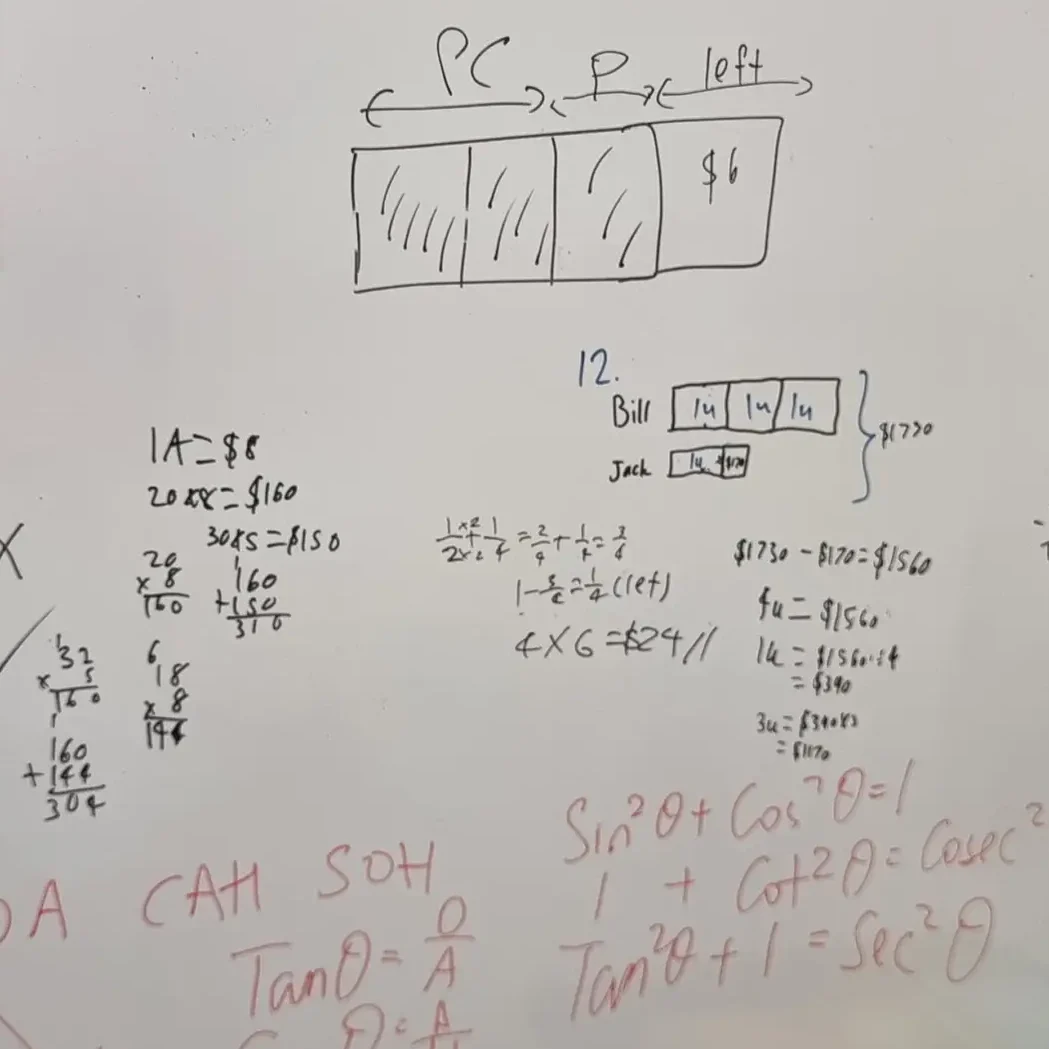 PC P left
$6
12.
Bill 1u 1u 1u
$1730
Jack 1u $170
1A=$8
20x8=$160
30x5=$150
20
x 8
160
1
160
+150
310
1
32
x 5
160
6
18
x 8
144
1
160
+144
304
1x2/2x2+1/4=2/4+1/4=3/4
1-3/4=1/4(left)
4X6=$24//
$1730-$170=$1560
4u=$1560
1u=$1560÷4
=$390
3u=$390x3
=$1170
OA CAH SOH
Tanθ=O/A
θ=A
Sin²θ+Cos²θ=1
1+Cot²θ=Cosec²
Tan²θ+1=Sec²θ